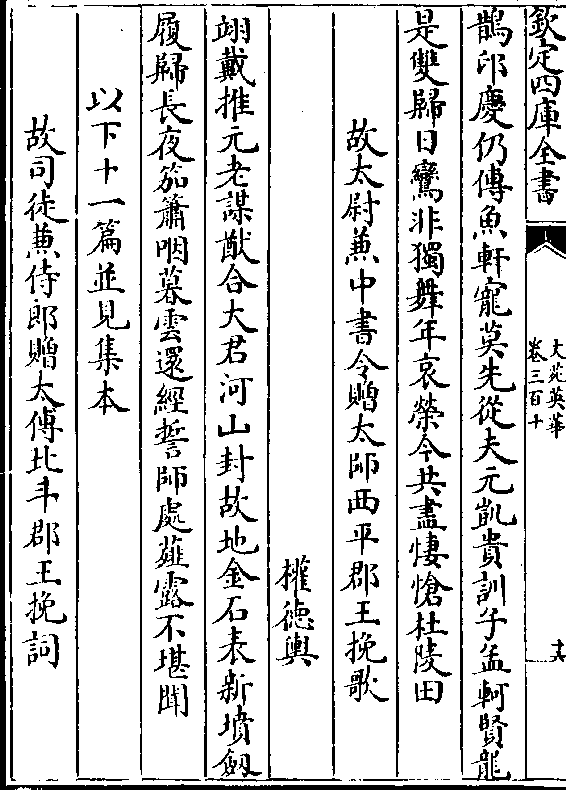 欽定四庫全書
文苑英華
卷三百十
十六
鵲印慶仍傳魚軒寵莫先從夫元凱貴訓子孟軻賢龍
是雙歸日鸞非獨舞年哀榮今共盡悽愴杜陵田
故太尉兼中書令贈太師西平郡王挽歌
權德輿
翊戴推元老謀猷合大君河山封故地金石表新墳劔
履歸長夜笳簫咽暮雲還經誓師處薤露不堪聞
以下十一篇並見集本
故司徒兼侍郎贈太傅北平郡王挽詞